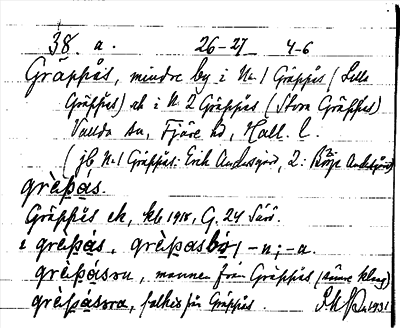 38. a. 26-27 4-6
Gräppås, mindre by i N:1 Gräppås (Lilla
Gräppås) och i N:2 Gräppås (Stora Gräppås)
Vallda sn, Fjäre hd, Hall. l.
(jb N:1 Gräppås: Erik Andersgård, 2:
grèpås.
Gräppås ek, kb 1918, G. 24 Särö.
i grèpås, grèpåsbó, -n; -a.
grèpåsarn, mannen från Gräppås (samme klang)
grèpåsara, folket från Gräppås. 1931